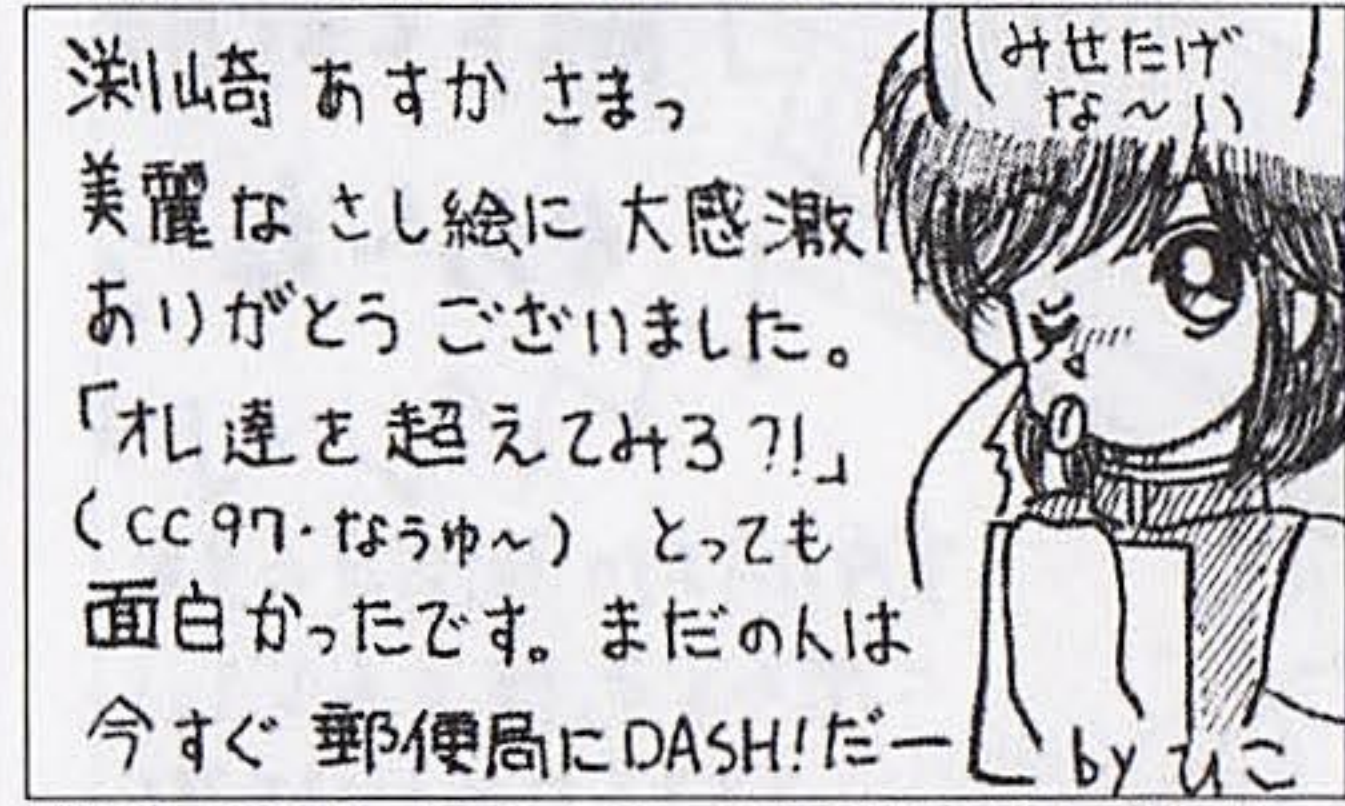 渕崎 あすか さまっ
美麗な さし絵に 大感激
ありがとう ございました。
「オレ達を超えてみろ?!」
(CC97・なうゅ～) とっても
面白かったです。まだの人は
今すぐ 郵便局にDASH!だー
みせたげ
な～い
by ひこ